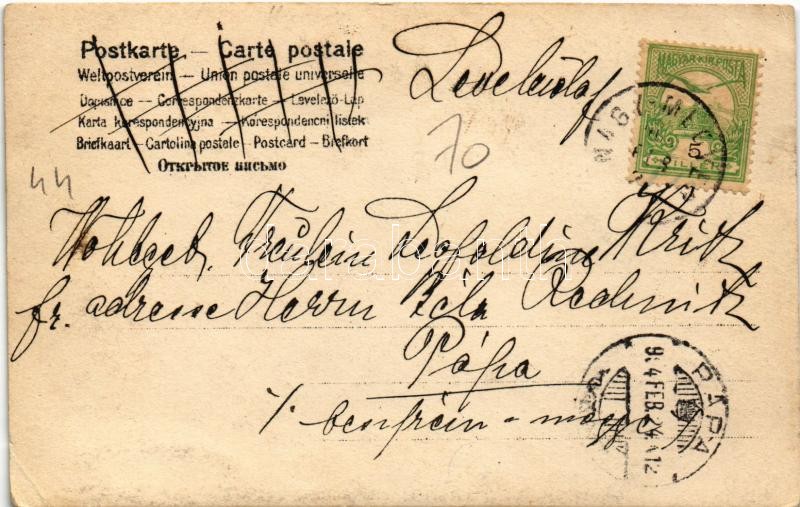 Postkarte — Carte postale
Weltpostverein — Union postale universelle
Dopisnice — Correspondenzkarte — Levelező-Lap
Karta korespondencyjna — Korespondencni listek
Briefkaart — Cartolina postale — Postcard — Brefkort
Открытое письмо
Levelezőlap
MAGYAR KIR. POSTA
70
44
Wohlgeb. Fräulein Leopoldine Kritz
fr. adresse Herrn Béla Rechnitz
Pápa
PÁPA
904 FEB. 24